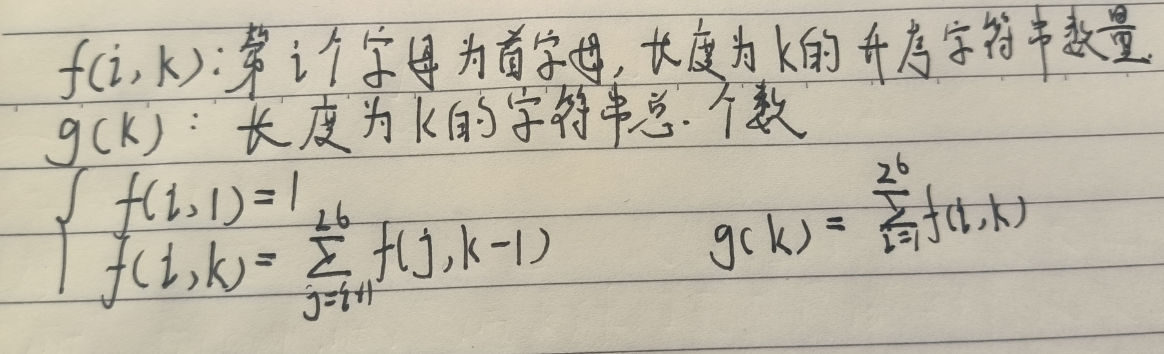 f(i,k):第i个字母为首字母,长度为k的升序字符串数量.
g(k):长度为k的字符串总个数
f(i,1)=1
f(i,k)=∑_{j=i+1}^{26}f(j,k-1) g(k)=∑_{i=1}^{26}f(i,k)